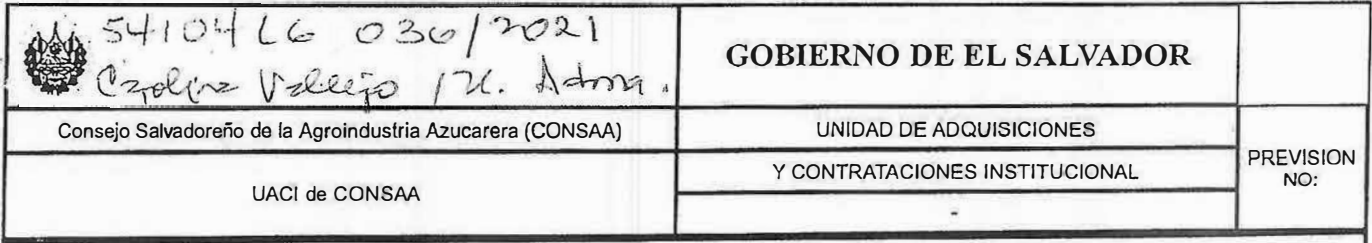 54104 LG 036/2021
Carolina Vallejo / U. Admva.
GOBIERNO DE EL SALVADOR
Consejo Salvadoreño de la Agroindustria Azucarera (CONSAA)
UNIDAD DE ADQUISICIONES
UACI de CONSAA
Y CONTRATACIONES INSTITUCIONAL
-
PREVISION
NO: